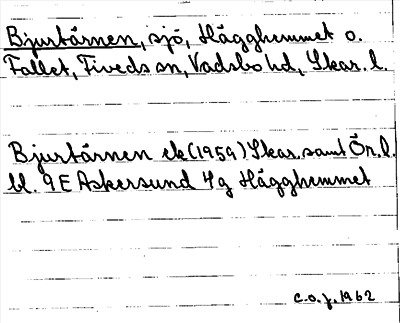 Bjurtärnen, sjö, Hägghemmet o.
Fallet, Tiveds sn, Vadsbo hd, Skar. l.
Bjurtärnen ek (1959) Skar. samt Ör. l.
bl. 9E Askersund 4g Hägghemmet
c.o.j. 1962